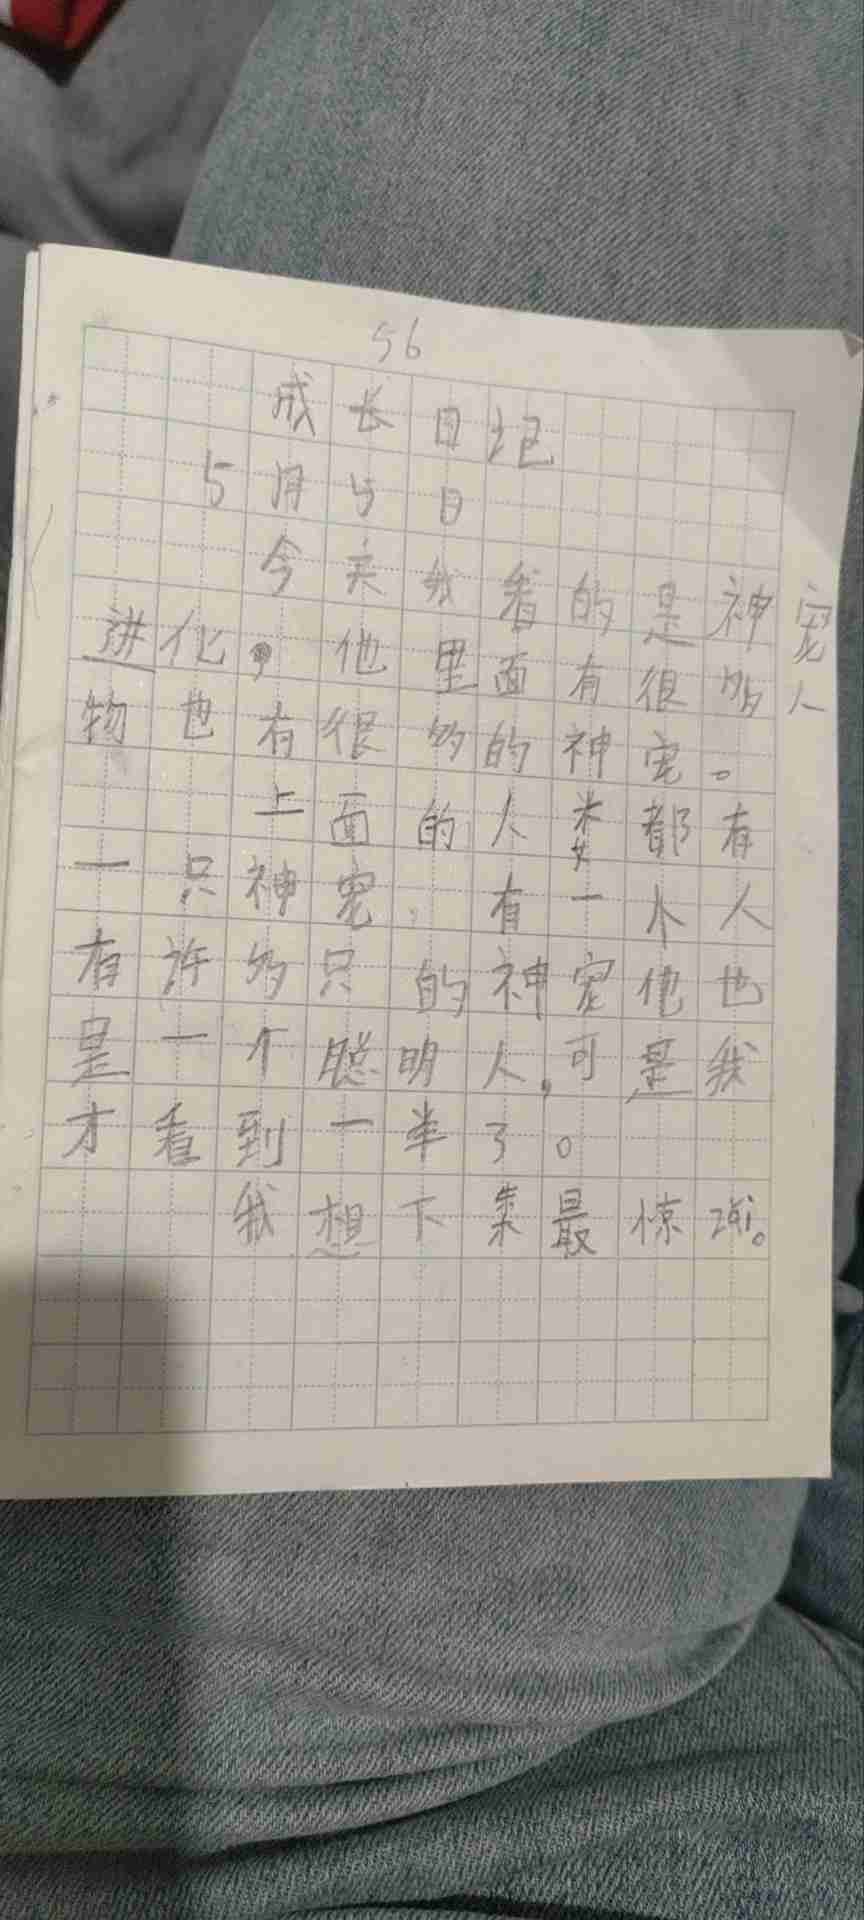 56
成长日记
5月5日
今天我看的是神宠
进化，他里面有很多人
物也有很多的神宠。
上面的人类都有
一只神宠，有一个人
有许多只的神宠他也
是一个聪明人，可是我
才看到一半了。
我想下集最惊